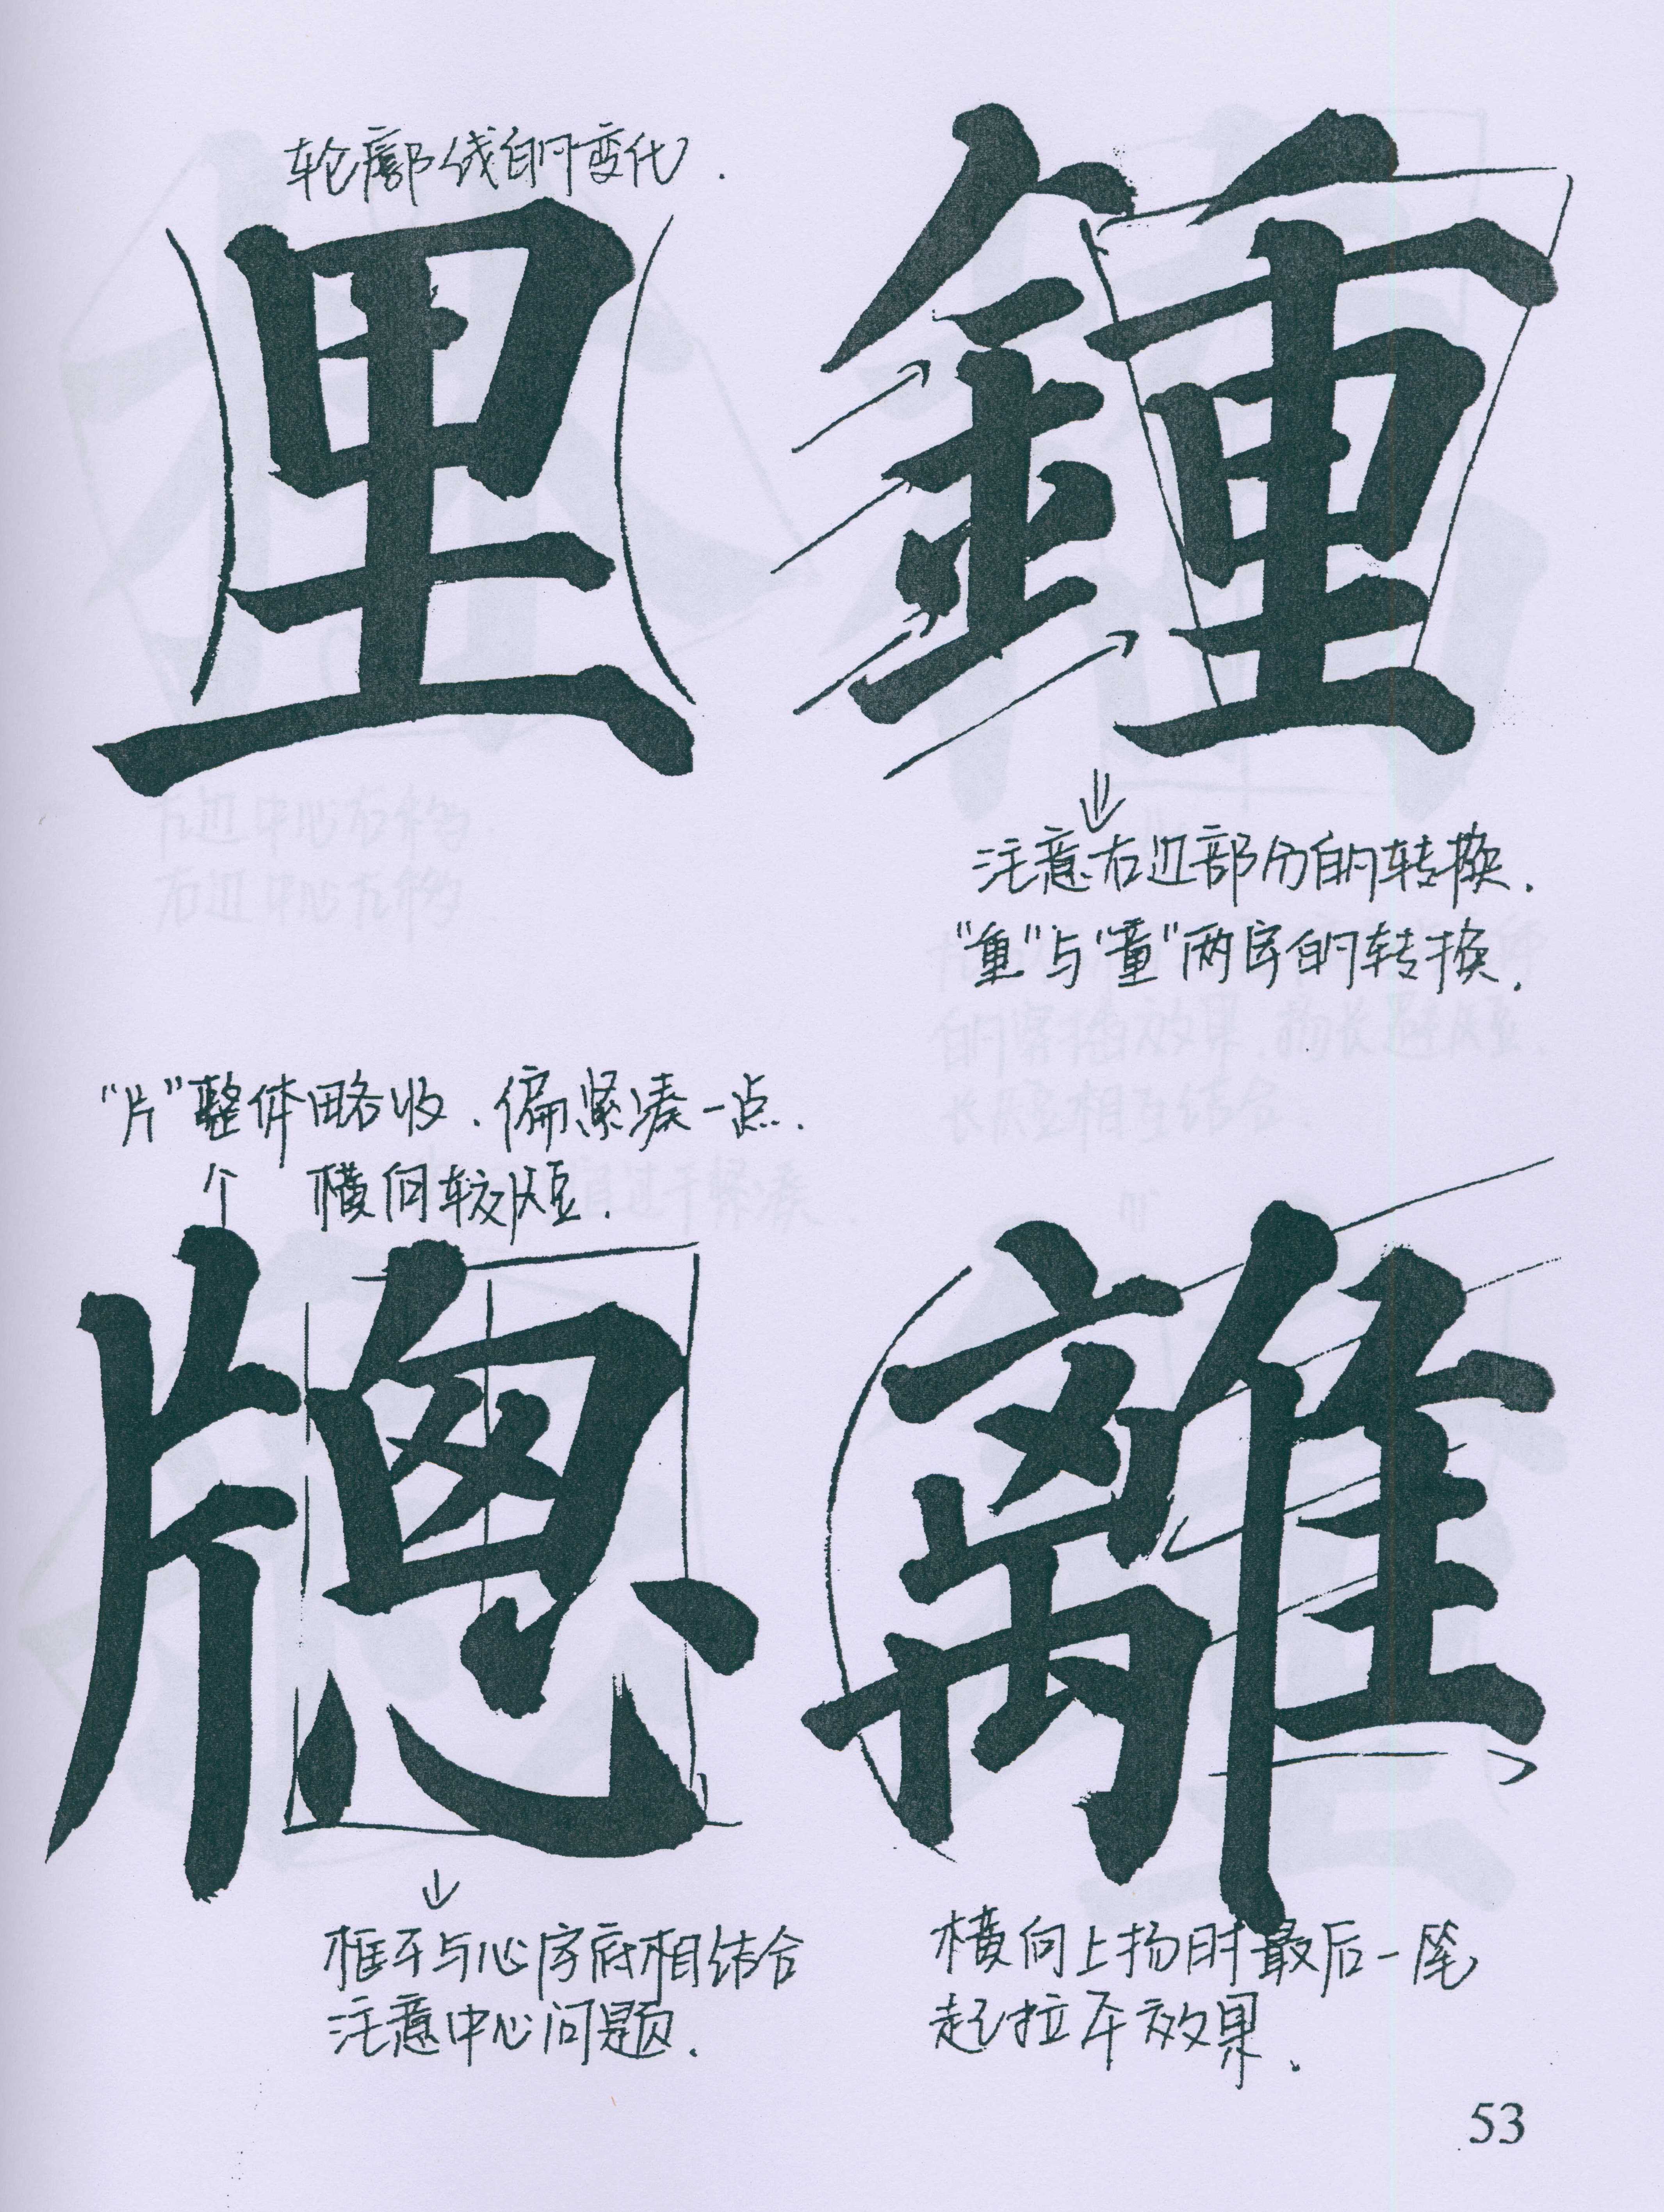 轮廓线的变化.
里
鍾
注意右边部分的转换.
“重”与“童”两字的转换.
“片”整体略收.偏紧凑一点.
横向较短.
牎
離
框子与心字底相结合
注意中心问题.
横向上扬时最后一笔
起拉平效果.
53